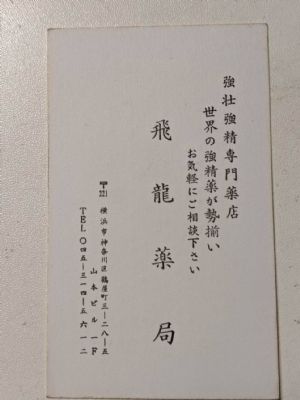 強壮強精専門薬店
世界の強精薬が勢揃い
お気軽にご相談下さい
飛龍薬局
〒221 横浜市神奈川区鶴屋町三ー二八ー五
山本ビル一F
TEL〇四五ー三一四ー五六一二